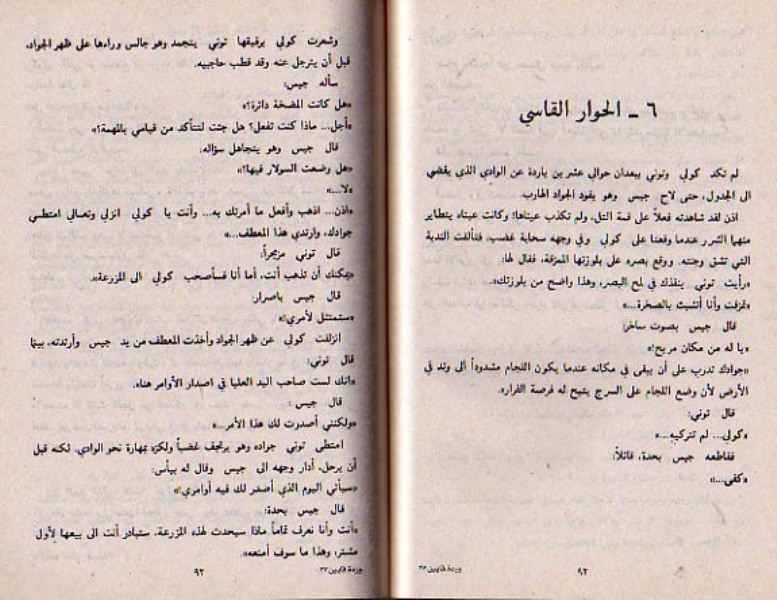 ٦ ـ الحوار القاسي
لم تكد كولي وتوني يبعدان حوالي عشرين ياردة عن الوادي الذي يفضي
الى الجدول، حتى لاح جيس وهو يقود الجواد الهارب.
اذن لقد شاهدته فعلاً على قمة التل، ولم تكذب عيناها! وكانت عيناه يتطاير
منهما الشرر عندما وقعتا على كولي وفي وجهه سحابة غضب، فتألقت الندبة
التي تشق وجنته. ووقع بصره على بلوزتها الممزقة، فقال لها:
«رأيت توني ينقذك في لمح البصر، وهذا واضح من بلوزتك».
«تمزقت وأنا أتشبث بالصخرة...»
قال جيس بصوت ساخر:
«يا له من مكان مريح!»
«جوادك تدرب على أن يبقى في مكانه عندما يكون اللجام مشدوداً الى وتد في
الأرض لأن وضع اللجام على السرج يتيح له فرصة الفرار».
قال توني:
«كولي... لم تتركيه...»
فقاطعه جيس بحدة، قائلاً:
«كفى...»
٩٢
وردة قايين ٣٣
وشعرت كولي برفيقها توني يتجمد وهو جالس وراءها على ظهر الجواد،
قبل أن يترجل عنه وقد قطب حاجبيه.
سأله جيس:
«هل كانت المضخة دائرة؟»
«أجل... ماذا كنت تفعل؟ هل جئت لتتأكد من قيامي بالمهمة؟»
قال جيس وهو يتجاهل سؤاله:
«هل وضعت السولار فيها؟»
«لا...»
«اذن... اذهب وأفعل ما أمرتك به... وأنت يا كولي انزلي وتعالى امتطي
جوادك، وارتدي هذا المعطف...»
قال توني مزمجراً:
«يمكنك أن تذهب أنت، أما أنا فسأصحب كولي الى المزرعة».
قال جيس باصرار:
«ستمتثل لأمري!»
انزلقت كولي عن ظهر الجواد وأخذت المعطف من يد جيس وأرتدته، بينما
قال توني:
«انك لست صاحب اليد العليا في اصدار الأوامر هنا».
قال جيس:
«ولكنني أصدرت لك هذا الأمر...»
امتطى توني جواده وهو يرتجف غضباً ولكزه بمهارة نحو الوادي. لكنه قبل
أن يرحل، أدار وجهه الى جيس وقال له بيأس:
«سيأتي اليوم الذي أصدر لك فيه أوامري!»
قال جيس بحدة:
«أنت وأنا نعرف تماماً ماذا سيحدث لهذه المزرعة، ستبادر أنت الى بيعها لأول
مشتر، وهذا ما سوف أمنعه».
٩٣
وردة قايين ٣٣